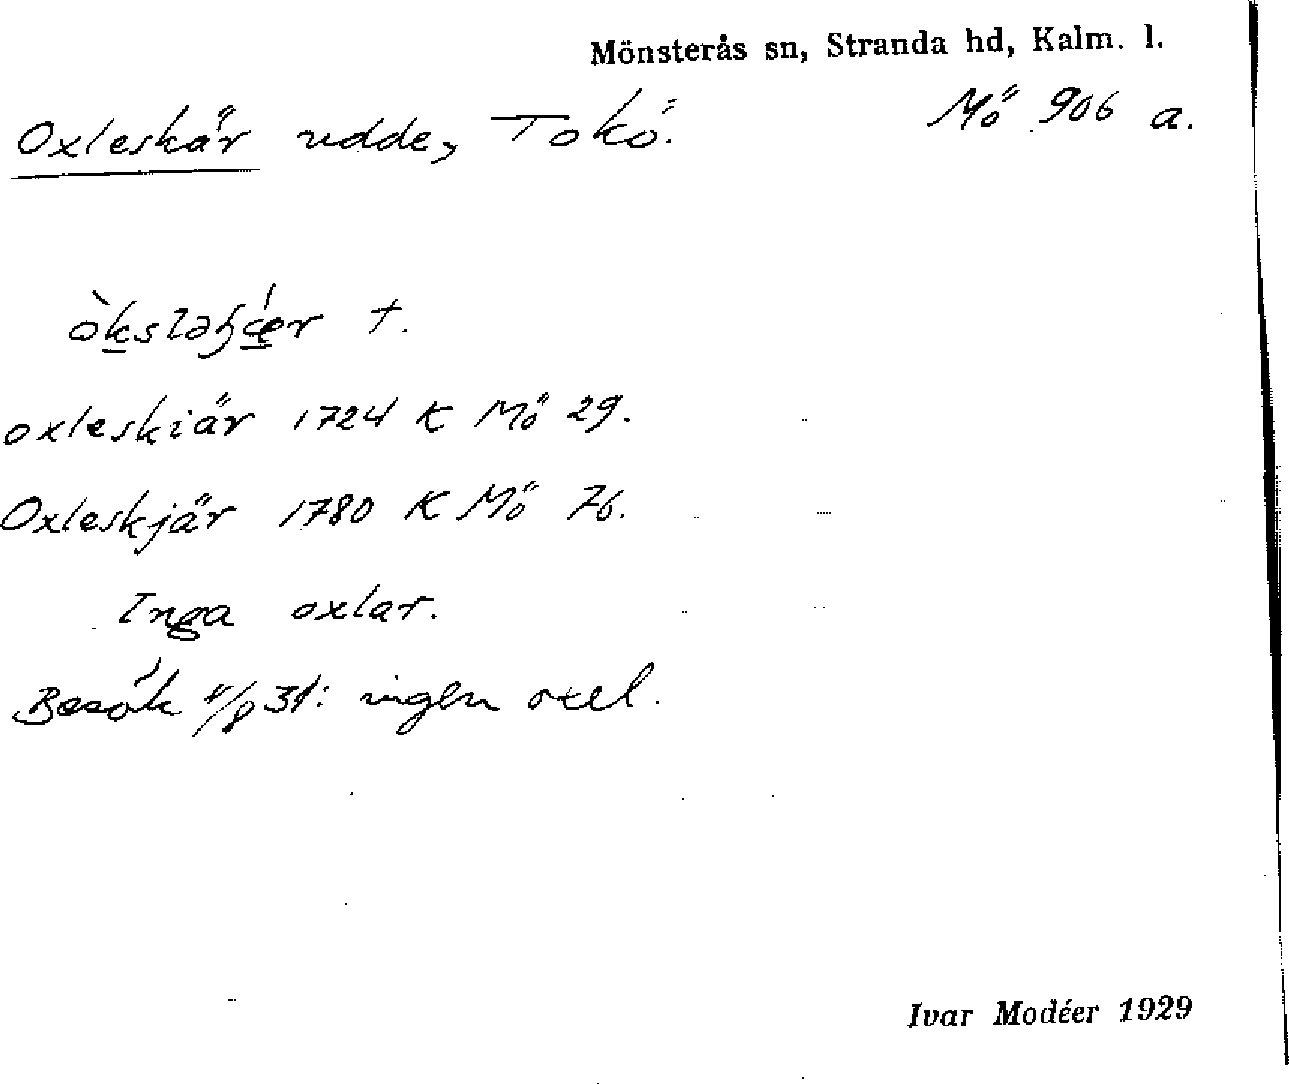 Mönsterås sn, Stranda hd, Kalm. l.
Oxleskär udde, Tokö. Mö 906 a.
oxleskiär 1724 K Mö 29.
Oxleskjär 1780 K Mö 76.
Inga oxlar.
Besök /8 31: ingen oxel.
Ivar Modéer 1929